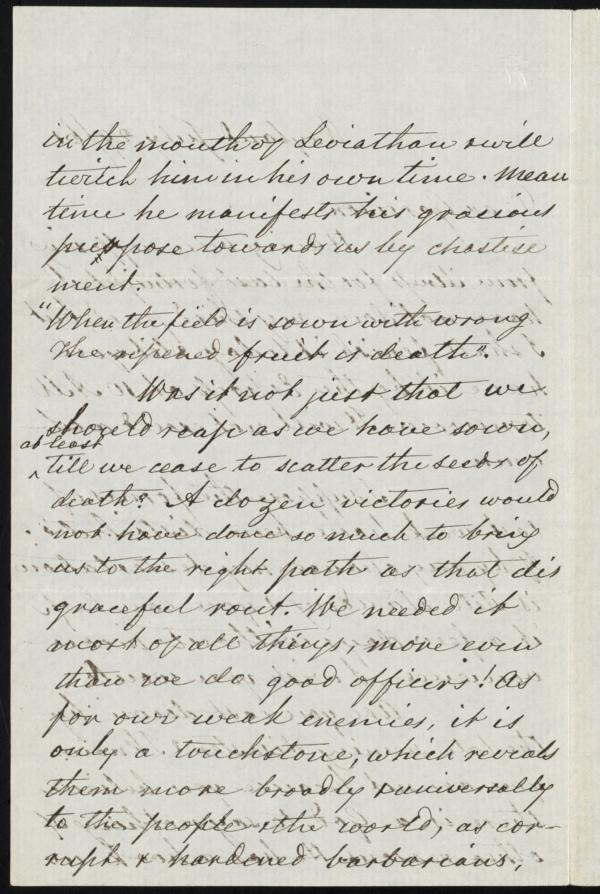 in the mouth of Leviathan & will
twitch him in his own time. Mean
time he manifests his gracious
purpose towards us by chastise
ment.
"When the field is sown with wrong
The ripened fruit is death".
Was it not just that we
should reap as we have sown,
at least
^ till we cease to scatter the seeds of
death? A dozen victories would
not have done so much to bring
us to the right path as that dis
graceful rout. We needed it
most of all things, more even
than we do good officers! As
for our weak enemies, it is
only a touchstone, which reveals
them more broadly & universally
to the people & the world, as cor-
rupt & hardened barbarians,